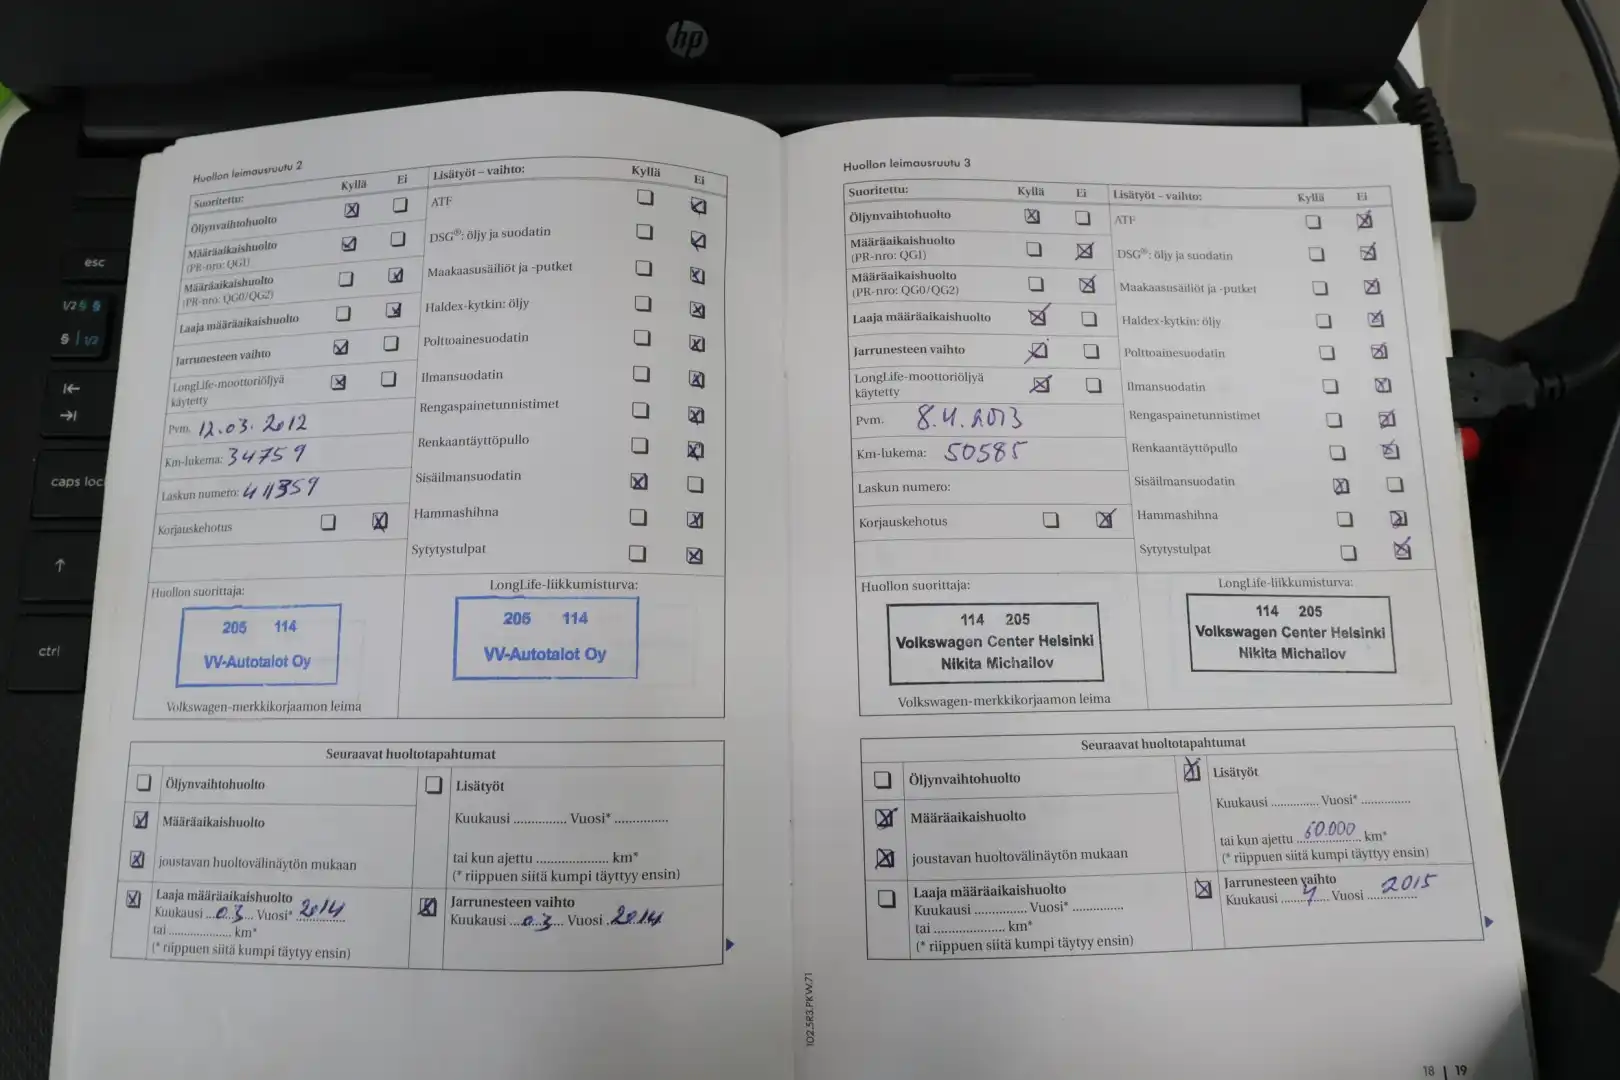 hp
esc
1/2 § §
§ | 1/2
caps loc
ctrl
Huollon leimausruutu 2
Suoritettu: Kyllä Ei
Öljynvaihtohuolto
Määräaikaishuolto
(PR-nro: QG1)
Määräaikaishuolto
(PR-nro: QG0/QG2)
Laaja määräaikaishuolto
Jarrunesteen vaihto
LongLife-moottoriöljyä
käytetty
Pvm. 12.03.2012
Km-lukema: 34759
Laskun numero: 411359
Korjauskehotus
Lisätyöt – vaihto: Kyllä Ei
ATF
DSG®: öljy ja suodatin
Maakaasusäiliöt ja -putket
Haldex-kytkin: öljy
Polttoainesuodatin
Ilmansuodatin
Rengaspainetunnistimet
Renkaantäyttöpullo
Sisäilmansuodatin
Hammashihna
Sytytystulpat
Huollon suorittaja:
205 114
VV-Autotalot Oy
Volkswagen-merkkikorjaamon leima
LongLife-liikkumisturva:
205 114
VV-Autotalot Oy
Seuraavat huoltotapahtumat
Öljynvaihtohuolto
Määräaikaishuolto
joustavan huoltovälinäytön mukaan
Laaja määräaikaishuolto
Kuukausi ...03... Vuosi* 2014
tai .................... km*
(* riippuen siitä kumpi täytyy ensin)
Lisätyöt
Kuukausi .............. Vuosi* ..............
tai kun ajettu .................... km*
(* riippuen siitä kumpi täyttyy ensin)
Jarrunesteen vaihto
Kuukausi ...03... Vuosi .2014
Huollon leimausruutu 3
Suoritettu: Kyllä Ei
Öljynvaihtohuolto
Määräaikaishuolto
(PR-nro: QG1)
Määräaikaishuolto
(PR-nro: QG0/QG2)
Laaja määräaikaishuolto
Jarrunesteen vaihto
LongLife-moottoriöljyä
käytetty
Pvm. 8.4.2013
Km-lukema: 50585
Laskun numero:
Korjauskehotus
Lisätyöt – vaihto: Kyllä Ei
ATF
DSG®: öljy ja suodatin
Maakaasusäiliöt ja -putket
Haldex-kytkin: öljy
Polttoainesuodatin
Ilmansuodatin
Rengaspainetunnistimet
Renkaantäyttöpullo
Sisäilmansuodatin
Hammashihna
Sytytystulpat
Huollon suorittaja:
114 205
Volkswagen Center Helsinki
Nikita Michailov
Volkswagen-merkkikorjaamon leima
LongLife-liikkumisturva:
114 205
Volkswagen Center Helsinki
Nikita Michailov
Seuraavat huoltotapahtumat
Öljynvaihtohuolto
Määräaikaishuolto
joustavan huoltovälinäytön mukaan
Laaja määräaikaishuolto
Kuukausi .............. Vuosi* ..............
tai .................... km*
(* riippuen siitä kumpi täytyy ensin)
Lisätyöt
Kuukausi .............. Vuosi* ..............
tai kun ajettu ..60.000.. km*
(* riippuen siitä kumpi täyttyy ensin)
Jarrunesteen vaihto
Kuukausi ....4.... Vuosi 2015
102.5R3.PKW.71
18 | 19